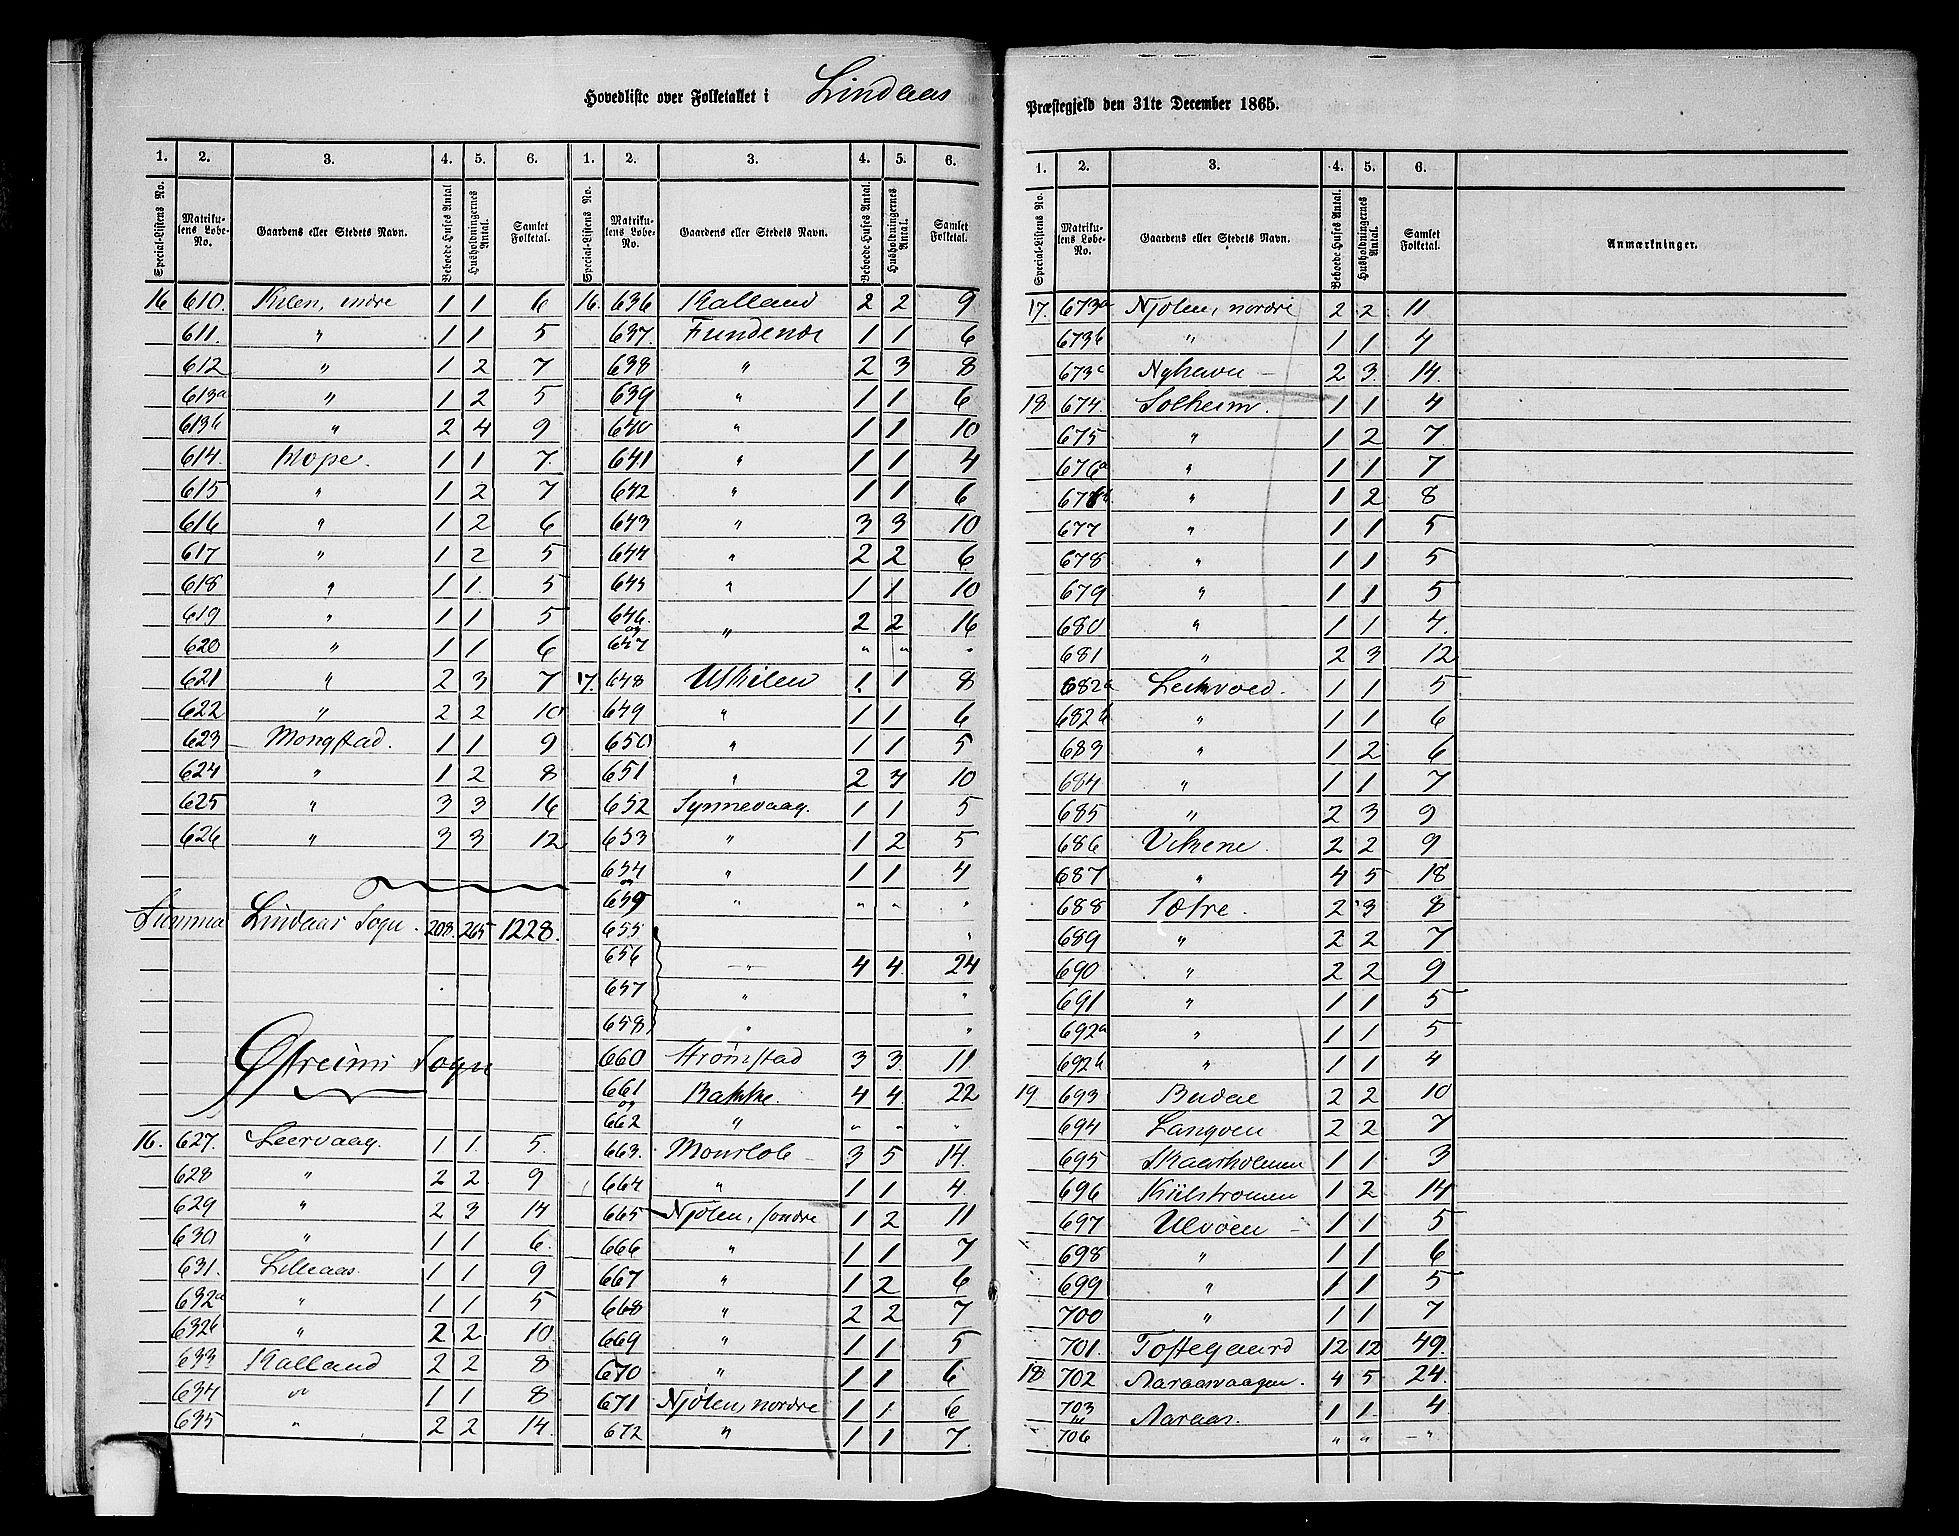 Hovedliste over Folketallet i Lindaas
Præstegjeld den 31te December 1865.
1. 2. 3. 4. 5. 6. 1. 2. 3. 4. 5. 6.
Special-Listens No. Matrikulens Løbe-No. Gaardens eller Stedets Navn. Beboede Huses Antal Husholdningernes Antal. Samlet Folketal. Special-Listens No. Matrikulens Løbe-No. Gaardens eller Stedets Navn. Beboede Huses Antal. Husholdningernes Antal. Samlet Folketal.
16 610. Kilen, indre 1 1 6
611. " 1 1 5
612 " 1 2 7
613a " 1 2 5
613b " 2 4 9
614. Hope. 1 1 7.
615 " 1 2 7
616 " 1 2 6
617 " 1 2 5
618 " 1 1. 5
619 " 1 1 5
620 " 1 1 6
621 " 2 3 7
622 " 2 2 10
623 Mongstad. 1 1 9
624 " 1 2 8
625 " 3 3 16
626 " 3 3 12
Summa Lindaas Sogn. 208. 265 1228.
Østreims Sogn
16. 627. Leervaag. 1 1. 5.
628 " 2 2. 9
629 " 2 3 14
630 " 1 1 6.
631. Lilleaas. 1 1 9
632a " 1 1 5
632b " 2 2 10.
633 Kalland 2 2 8
634 " 1 1 8.
635 " 2 2 14.
16. 636 Kalland 2 2 9
637. Fundenæs 1 1 6
638 " 2 3 8
639 " 1 1 6
640 " 1 1 10
641 " 1 1 4
642 " 1 1 6
643 " 3 3 10
644 " 2 2 6
645 " 1 1 10
646. og " 2 2 16
647 " " "
17. 648 Uskilen 1 1 8
649 " 1 1 6
650 " 1 1 5
651 " 2 3 10
652 Synnevaag. 1 1 5
653 " 1 2 5
654 og " 1 1 4
659 " " " "
655 "
656 " 4 4. 24
657 " "
658 " "
660 Strømstad 3 3. 11
661 og Bakke 4 4 22
662 " " " "
663. Monslob 3 5 14.
664 " 1 1 4.
665 Njøten, søndre 1 2 11
666 " 1 1 7
667 " 1 2 6
668 " 2 2 7
669 " 1 1 5
670 " 1 1 6
671 Njøten, nordre 1 1. 6
672 " 1 1 7.
1. 2. 3. 4. 5. 6.
Special-Listens No. Matrikulens Løbe-No. Gaardens eller Stedets Navn. Beboede Huses Antal. Husholdningernes Antal. Samlet Folketal. Anmærkninger.
17. 673a Njøten, nordre 2 2 11
673b " 1 1 4
673c Nyhavn 2 3. 14.
18 674. Solheim. 1 1 4
675 " 1 2 7.
676a " 1 1 7
676b " 1 2 8
677 " 1 1 5
678 " 1 1 5
679 " 1 1 5
680 " 1 1 4.
681 " 2 3 12
682a Leikvoed. 1 1 5
682b " 1 1 6
683 " 1 2 6
684 " 1 1 7
685 " 2 3 9
686 Vikene. 2 2 9
687 " 4 5 18
688 Sætre. 2 3 8
689 " 2 2 7
690 " 2 2 9
691 " 1 1 5
692a " 1 1 5
692b " 1 1 4
19 693 Budal 2 2 10
694 Langøen 2 2 7
695 Skaarholmen 1 1 3
696 Kiilstrømen 1 2 14
697 Ulvøen 1 1 5
698 " 1 1 6
699 " 1 1 5
700 " 1 1 7
701 Toftegaard 12 12 49.
18 702 Aaraasvaagen. 4 5 24.
703 til Aaraas. 1 1. 4.
706 " " "